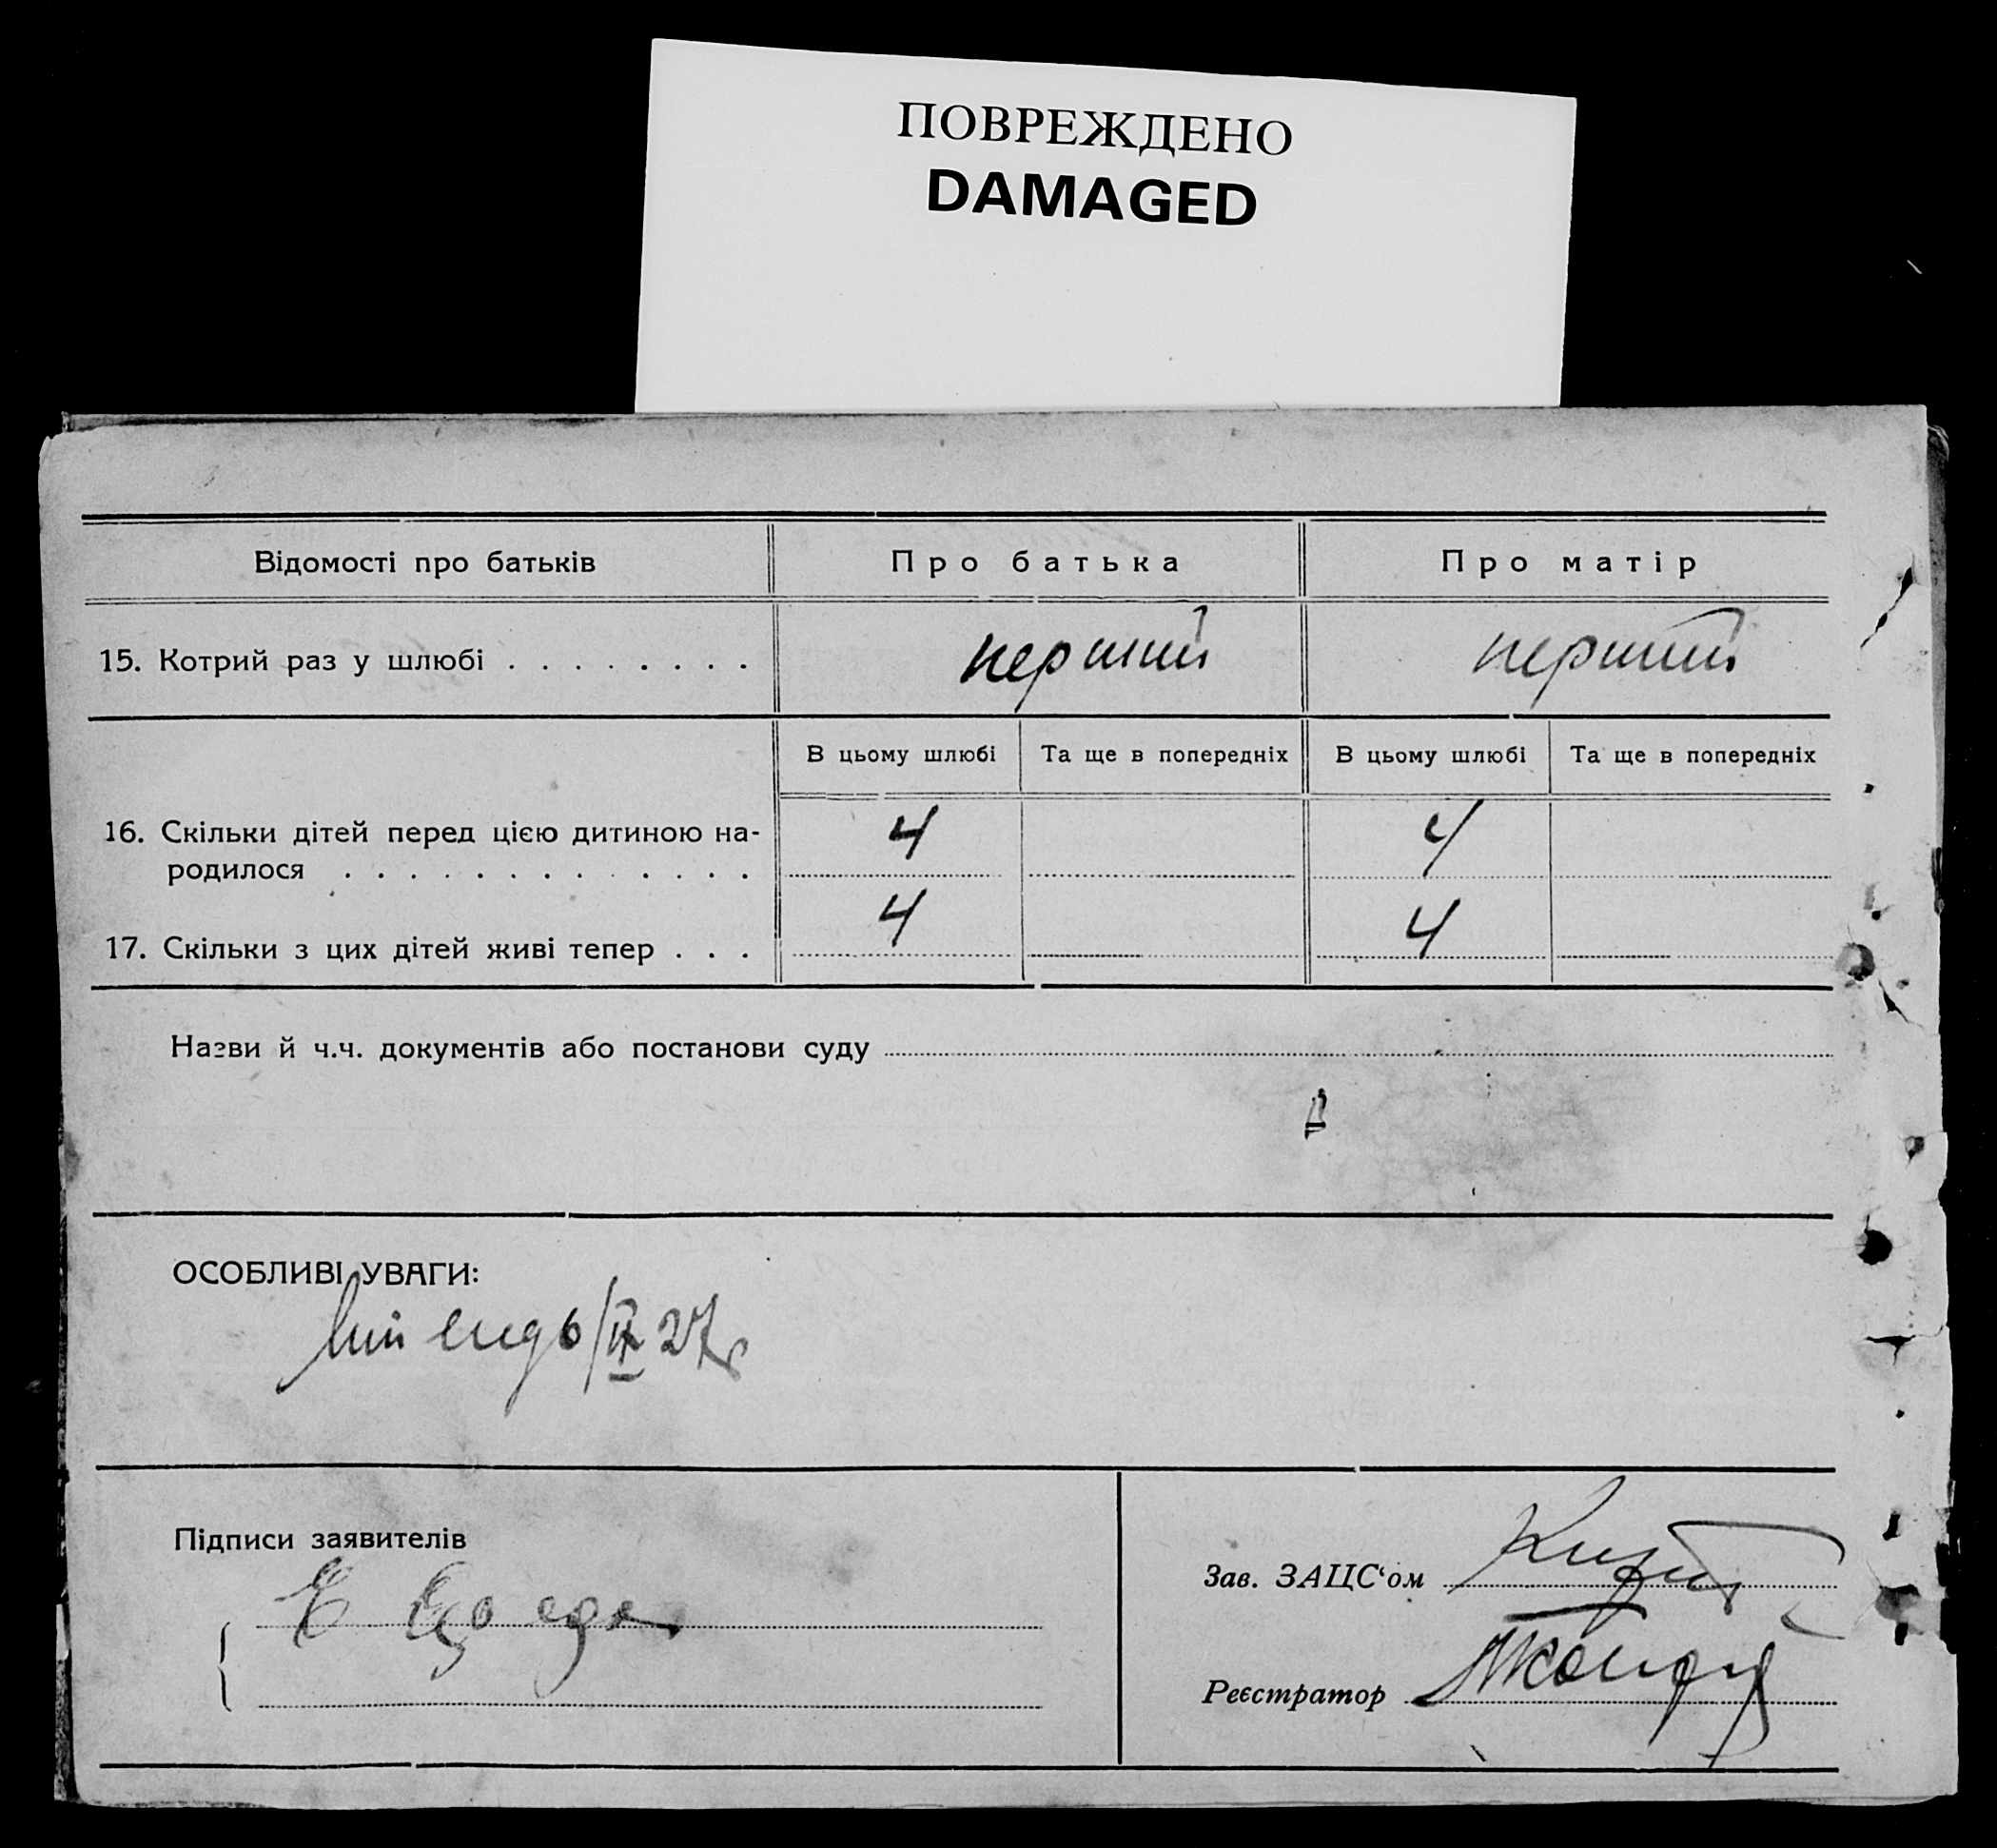 ПОВРЕЖДЕНО
DAMAGED
Відомості про батьків
Про батька
Про матір
15. Котрий раз у шлюбі . . . . . . . .
перший
перший
В цьому шлюбі
Та ще в попередніх
В цьому шлюбі
Та ще в попередніх
16. Скільки дітей перед цією дитиною на-
родилося . . . . . . . . . . . . .
4
4
17. Скільки з цих дітей живі тепер . . .
4
4
Назви й ч.ч. документів або постанови суду
ОСОБЛИВІ УВАГИ:
6/IV 27р
Підписи заявителів
Зав. ЗАЦС‘ом
Реєстратор